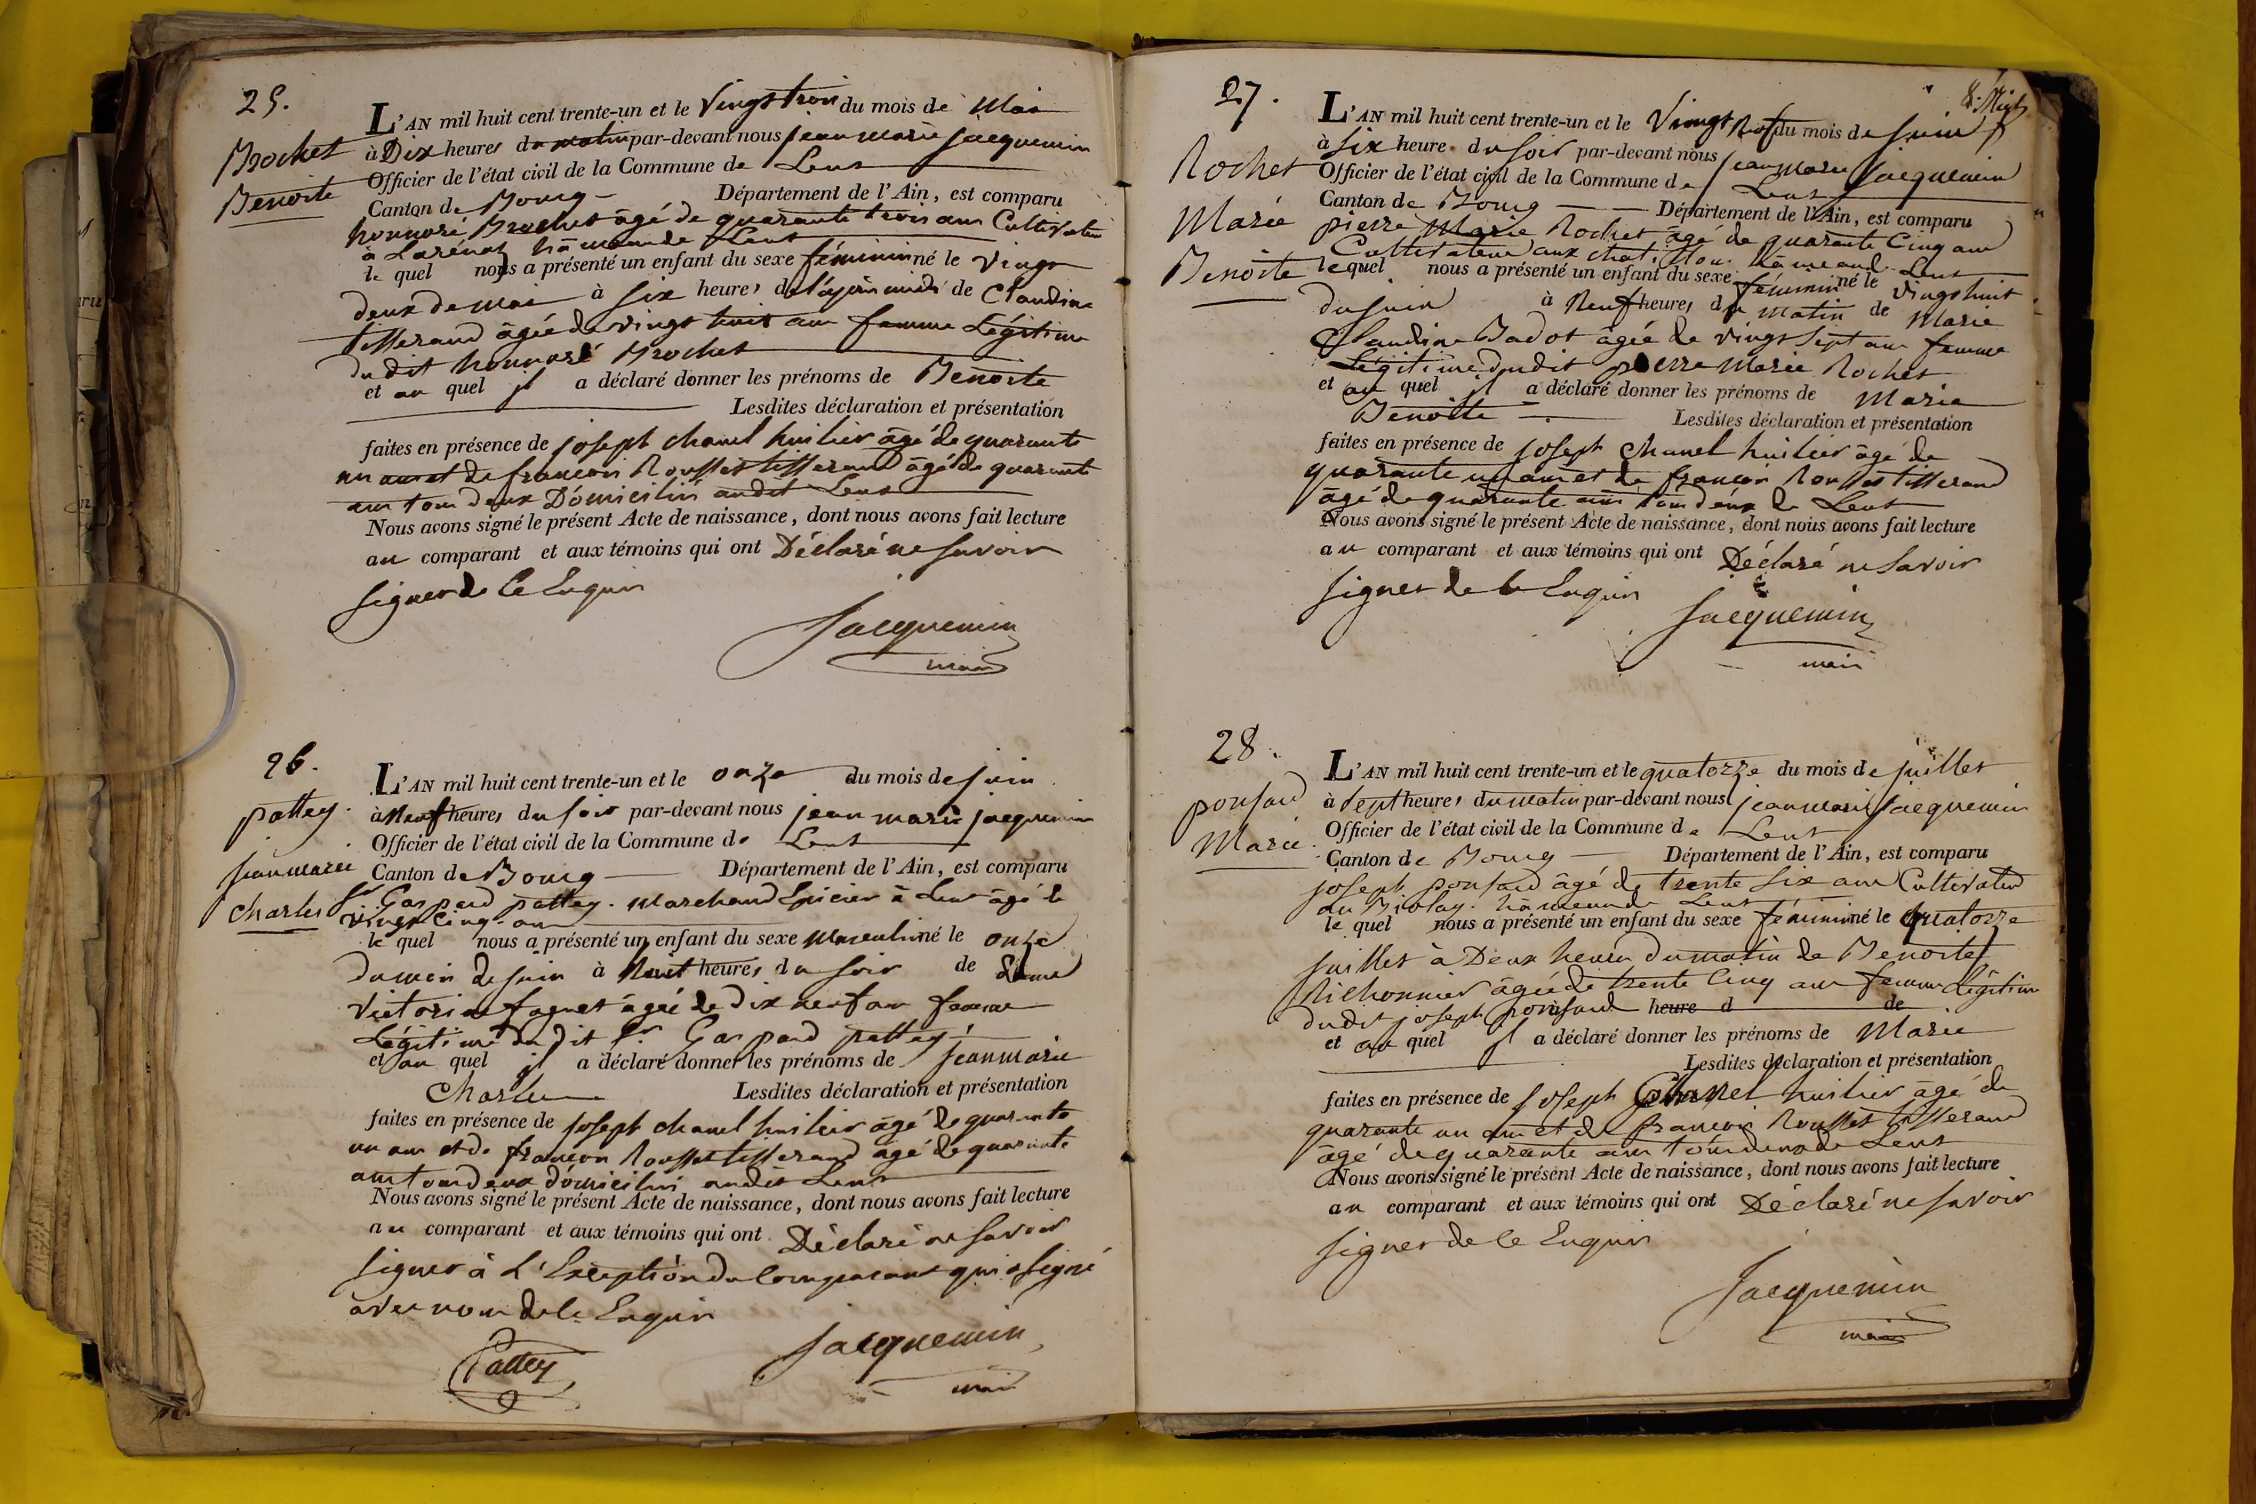 25.
Brochet
Benoite
L'AN mil huit cent trente-un et le vingt trois du mois de Mai
à Dix heures du matin par-devant nous jean marie jacquemin
Officier de l'état civil de la Commune de Lent
Canton de Bourg Département de l'Ain, est comparu
honnoré Brochet âgé de quarante trois ans Cultivateur
à hâmeau de Lent
le quel nous a présenté un enfant du sexe féminin né le vingt
deux de mai à six heures de l'aprèsmidi de Claudine
tisserand âgée de vingt huit ans femme Légitime
du dit honnoré Brochet
et au quel il a déclaré donner les prénoms de Benoite
Lesdites déclaration et présentation
faites en présence de joseph chanel huilier âgé de quarante
un ans et de françois Rousset tisserand âgé de quarante
ans tous deux Domiciliés audit Lent
Nous avons signé le présent Acte de naissance, dont nous avons fait lecture
au comparant et aux témoins qui ont Déclaré ne savoir
signer de ce Enquis
Jacquemin
maire
26.
pattey
jean marie
charles
L'AN mil huit cent trente-un et le onze du mois de juin
à Neuf heures du soir par-devant nous jean marie jacquemin
Officier de l'état civil de la Commune de Lent
Canton de Bourg Département de l'Ain, est comparu
sr Gaspard pattey marchand Epicier à Lent âgé de
vingt cinq ans
le quel nous a présenté un enfant du sexe masculin né le onze
du mois de juin à huit heures du soir de dame
victorine âgée de dix neuf ans femme
Légitime du dit sr Gaspard pattey
et au quel il a déclaré donner les prénoms de jean marie
Charles Lesdites déclaration et présentation
faites en présence de joseph chanel huilier âgé de quarante
un ans et de françois Rousset tisserand âgé de quarante
ans tous deux domiciliés audit Lent
Nous avons signé le présent Acte de naissance, dont nous avons fait lecture
au comparant et aux témoins qui ont Déclaré ne savoir
signer à L'Exception du Comparant qui a signé
avec nous de ce Enquis
Pattey
Jacquemin
maire
27.
Rochet
Marie
Benoite
L'AN mil huit cent trente-un et le Vingt huit du mois de juin
à six heure du soir par-devant nous jean marie jacquemin
Officier de l'état civil de la Commune de Lent
Canton de Bourg Département de l'Ain, est comparu
pierre Marie Rochet âgé de quarante Cinq ans
Cultivateur aux hâmeau de Lent
le quel nous a présenté un enfant du sexe féminin né le vingt huit
du juin à Neuf heures du matin de Marie
Claudine Badot âgée de vingt sept ans femme
Légitime du dit pierre Marie Rochet
et au quel il a déclaré donner les prénoms de Marie
Benoite Lesdites déclaration et présentation
faites en présence de joseph Chanel huilier âgé de
quarante un ans et de françois Rousset tisserand
âgé de quarante ans tous deux de Lent
Nous avons signé le présent Acte de naissance, dont nous avons fait lecture
au comparant et aux témoins qui ont Déclaré ne savoir
signer de ce Enquis
Jacquemin
maire
28.
ponsard
Marie
L'AN mil huit cent trente-un et le quatorze du mois de juillet
à sept heures du matin par-devant nous jean marie jacquemin
Officier de l'état civil de la Commune de Lent
Canton de Bourg Département de l'Ain, est comparu
joseph ponsard âgé de trente six ans Cultivateur
au Biolay hâmeau de Lent
le quel nous a présenté un enfant du sexe féminin né le quatorze
juillet à Deux heures du matin de Benoite
Richonnier âgée de trente Cinq ans femme Légitime
du dit joseph ponsard heure d de
et au quel il a déclaré donner les prénoms de Marie
Lesdites déclaration et présentation
faites en présence de joseph Chanel huilier âgé de
quarante un ans et de françois Rousset tisserand
âgé de quarante ans tous deux de Lent
Nous avons signé le présent Acte de naissance, dont nous avons fait lecture
au comparant et aux témoins qui ont Déclaré ne savoir
signer de ce Enquis
Jacquemin
maire